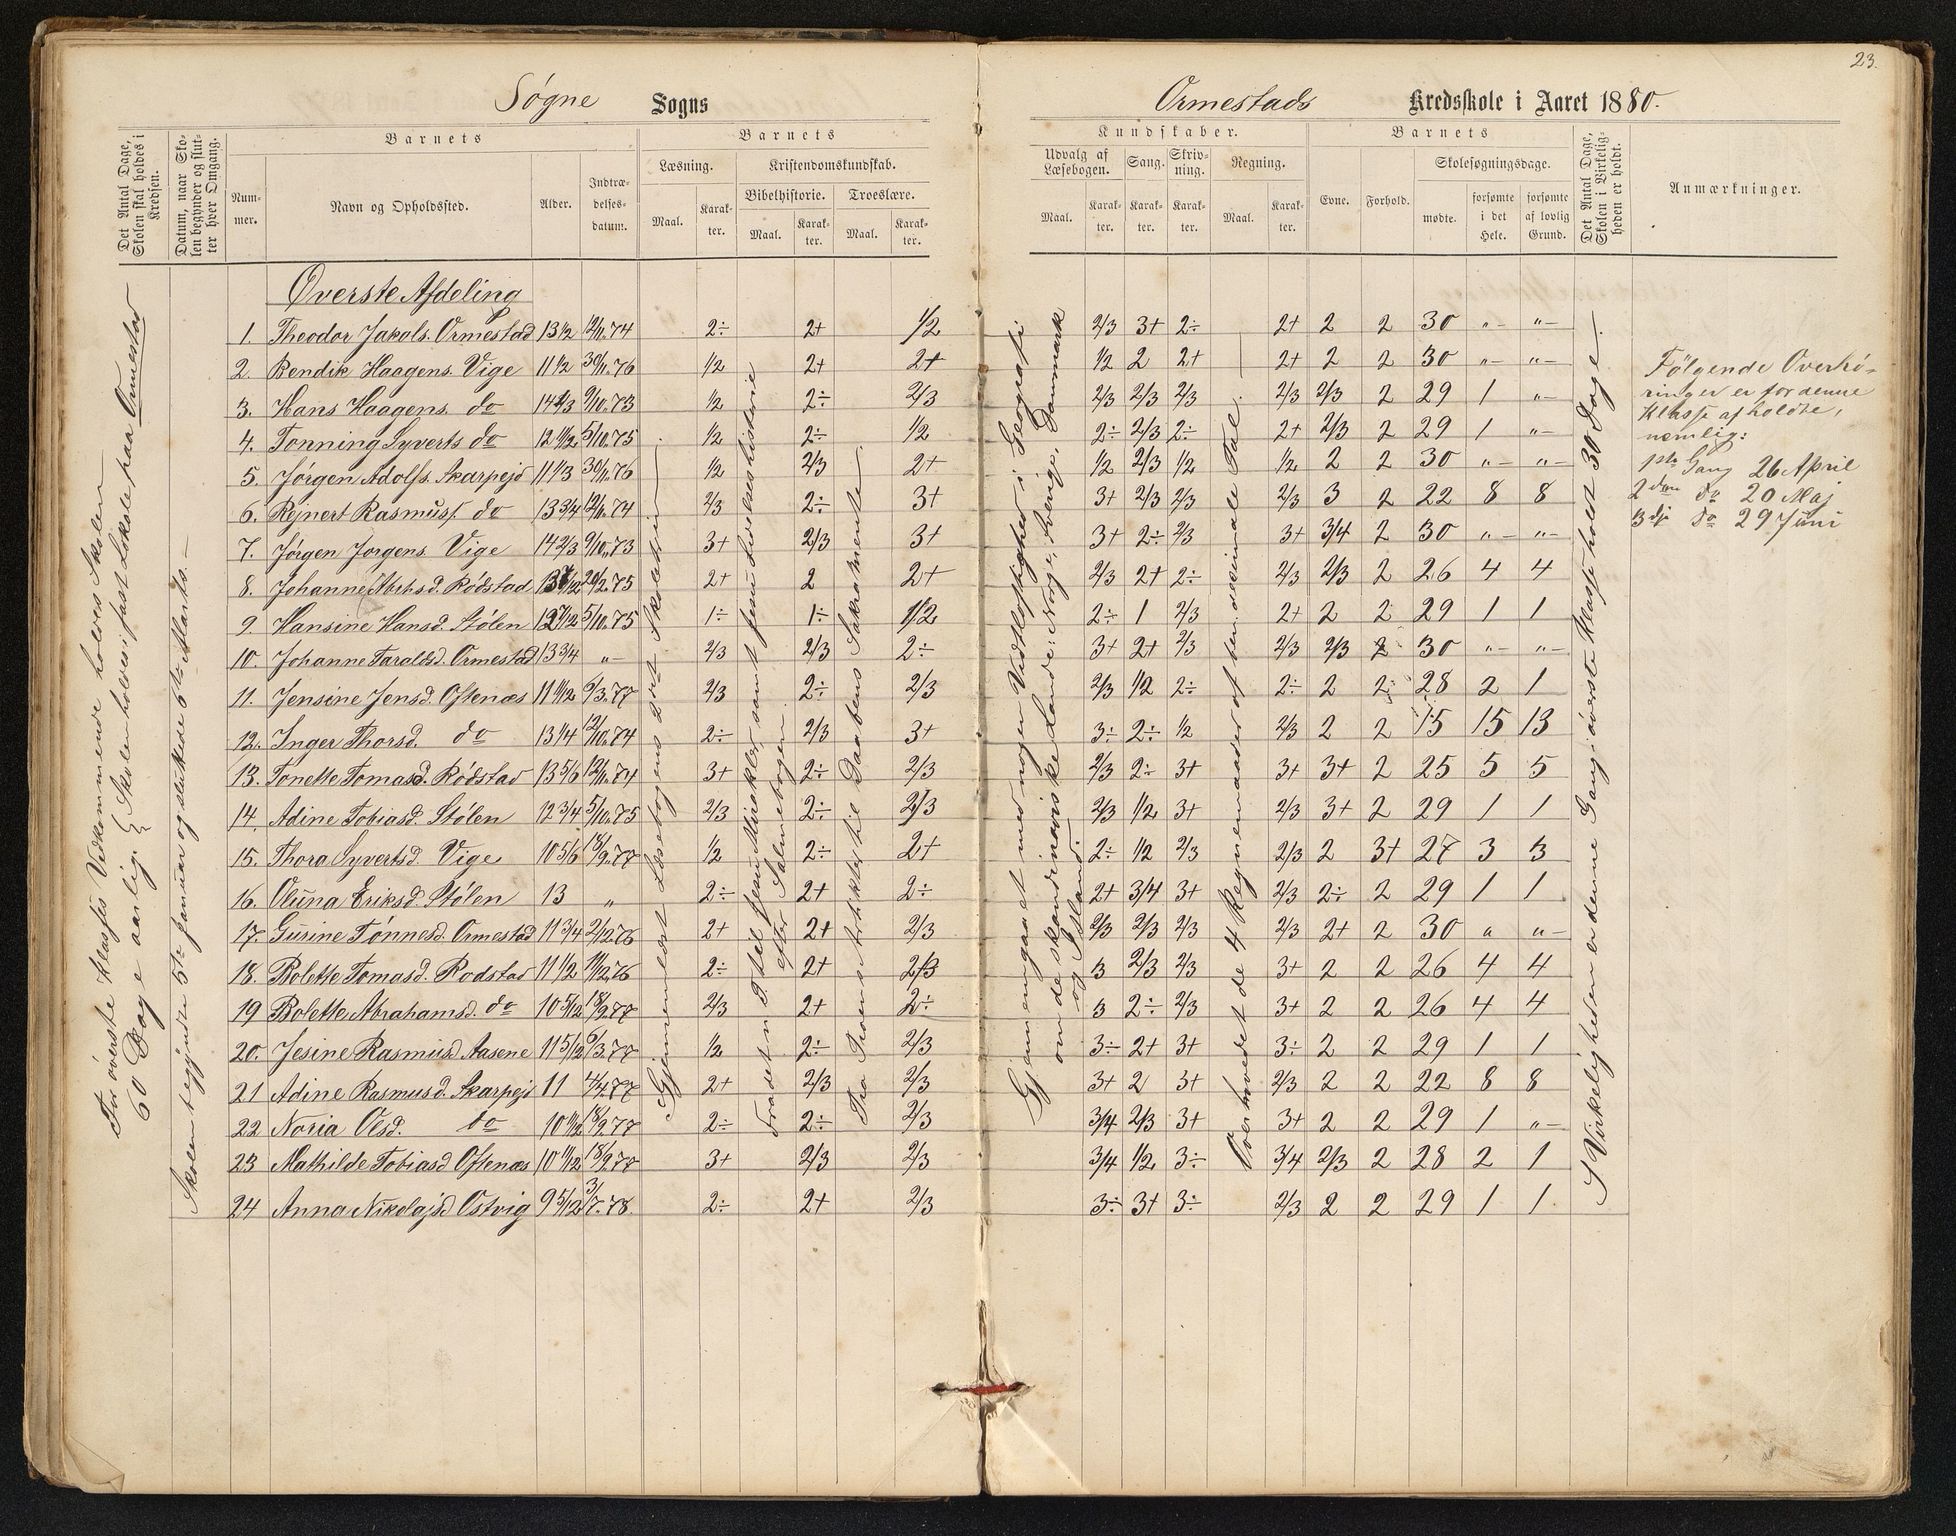 23.
Søgne Sogns
Ormestads Kredsskole i Aaret 1880.
Det Antal Dage, Skolen skal holdes i Kredsen.
Datum, naar Skolen begynder og slutter hver Omgang.
Barnets
Nummer.
Navn og Opholdssted.
Alder.
Indtrædelsesdatum.
Barnets
Læsning.
Maal.
Karakter.
Kristendomskundskab.
Bibelhistorie.
Maal.
Karakter.
Troeslære.
Maal.
Karakter.
Kundskaber.
Udvalg af Læsebogen.
Maal.
Karakter.
Sang.
Karakter.
Skrivning.
Karakter.
Regning.
Maal.
Karakter.
Barnets
Evne.
Forhold.
Skolesøgningsdage.
mødte.
forsømte i det Hele.
forsømte af lovlig Grund.
Det Antal Dage, Skolen i Virkeligheden er holdt.
Anmærkninger.
For øverste Klasses Vedkommende holdes Skolen
60 Dage aarlig. Skolen holdes i fast Lokale paa Ormestad
Skolen begyndte 5te Januar og sluttede 6te Marts.
Øverste Afdeling
1. Theodor Jakobs. Ormestad 13 1/2 12/11.74 2÷ 2+ 1/2 2/3 3+ 2÷ 2+ 2 2 30 „- „-
2. Bendik Haagens. Vige 11 1/2 30/11.76 1/2 2+ 2+ 1/2 2 2+ 2+ 2 2 30 „- „-
3. Hans Haagens. do 14 1/3 9/10.73 1/2 2÷ 2/3 2/3 2/3 2/3 2/3 2/3 2 29 1 „-
4. Tønning Syverts. do 12 11/12 5/10.75 1/2 2÷ 1/2 2÷ 2/3 2÷ 2+ 2/3 2 29 1 „-
5. Jørgen Adolfs. Skarpejd 11 1/3 30/11.76 1/2 2/3 2+ 1/2 2/3 1/2 1/2 2 2 30 „- „-
6. Rejnert Rasmuss. do 13 3/4 12/11.74 2/3 2÷ 3+ 3+ 2/3 2/3 2/3 3 2 22 8 8
7. Jørgen Jørgens. Vige 14 2/3 9/10.73 3+ 2/3 3+ 3+ 2÷ 2/3 3+ 3/4 2 30 „- „-
8. Johanne Abrhsd. Rødstad 2+ 2 2+ 2/3 2+ 2÷ 2/3 2/3 2 26 4 4
9. Hansine Hansd. Stølen 5/10.75 1÷ 1÷ 1/2 2÷ 1 2/3 2+ 2 2 29 1 1
10. Johanne Taraldsd. Ormestad 13 3/4 „- 2/3 2/3 2÷ 3+ 2+ 2/3 2/3 2/3 2 30 „- „-
11. Jensine Jensd. Oftenæs 11 11/12 6/3.77 2/3 2÷ 2/3 2/3 1/2 2÷ 2÷ 2 2 28 2 1
12. Inger Thorsd. do 13 1/4 12/10.74 2÷ 2/3 3+ 3÷ 2÷ 1/2 2/3 2 2 15 15 13
13. Tonette Tomasd. Rødstad 13 5/6 12/11.74 3+ 2÷ 2/3 2/3 2÷ 3+ 3+ 3+ 2 25 5 5
14. Adine Tobiasd. Stølen 12 3/4 5/10.75 2/3 2÷ 2/3 2/3 1/2 3+ 2/3 3+ 2 29 1 1
15. Thora Syvertsd. Vige 10 5/6 18/9.77 1/2 2÷ 2+ 2÷ 1/2 2/3 2/3 2 3+ 27 3 3
16. Oluna Eriksd. Stølen 13 „ 2÷ 2+ 2÷ 2+ 3/4 3+ 2/3 2÷ 2 29 1 1
17. Gurine Tønnesd. Ormestad 11 3/4 2/12.76 2+ 2+ 2/3 2/3 2/3 2/3 2/3 2+ 2 30 „ „-
18. Bolette Tomasd. Rødstad 11 1/2 11/12.76 2÷ 2+ 2/3 3 2/3 2/3 3+ 2 2 26 4 4
19 Bolette Abrahamsd. do 10 5/12 18/9.77 2/3 2+ 2÷ 3 2÷ 2/3 3+ 2 2 26 4 4
20. Jesine Rasmusd. Aasene 11 5/12 6/3.77 1/2 2÷ 2/3 3÷ 2+ 3+ 3÷ 2 2 29 1 1
21 Adine Rasmusd. Skarpejd 11 4/4.77 2+ 2/3 2/3 3+ 2 3+ 2/3 2 2 22 8 8
22 Noria Olsd. do 10 11/12 18/9.77 2÷ 2÷ 2/3 3/4 2/3 3+ 3+ 2 2 29 1 „-
23 Mathilde Tobiasd. Oftenæs 10 11/12 18/9.77 3+ 2/3 2/3 3/4 1/2 3÷ 3/4 2/3 2 28 2 1
24 Anna Nikolajsd. Østvig 9 5/12 3/7.78. 2÷ 2+ 2/3 3÷ 3+ 3÷ 2/3 2 2 29 1 1
Gjennemlæst Læsebogens 2det Skoletrin.
Fra det n. T. til Jesu Mirakler, samt Jesu Lidelseshistorie
efter Salmebogen.
Fra Troens Artikler til Daabens Sakramente.
Gjennemgaaet med nogen Vidtløftighed i Geografi
om de skandinaviske Lande: Norge, Sverige, Danmark
og Island.
Overhovedet de 4 Regnemaader af hen. decimale Tal.
I Virkeligheden er denne Gang i øverste Klasse holdt 30 Dage.
Følgende Overhø-
ringer er for denne
Klasse afholdte,
nemlig:
1ste Gang 26 April
2den do 20 Maj
3dje do 29 Juni